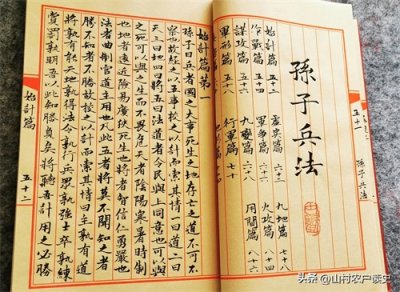 孫子兵法
五十一
孫子兵法
始計篇
作戰篇
謀攻篇
軍形篇 五十八
虛實篇 六十三
軍爭篇
九變篇
行軍篇 七十
九地篇 七十八
火攻篇 八十四
用間篇 八十六
始計篇第一
孫子曰兵者國之大事死生之地存亡之道不可不
察也故經之以五事校之以計而索其情一曰道二曰
天三曰地四曰將五曰法道者令民與上同意也可以與
之死可以與之生而不畏危天者陰陽寒暑時制
也地者遠近險易廣狹死生也將者智信仁勇嚴也
法者曲制官道主用也凡此五者將莫不聞知之者
勝不知者不勝故校之以計而索其情曰主孰有道
將孰有能天地孰得法令孰行兵眾孰強士卒孰練
賞罰孰明吾以此知勝負矣將聽吾計用之必勝
始計篇
五十二
头条 @山村农户读史